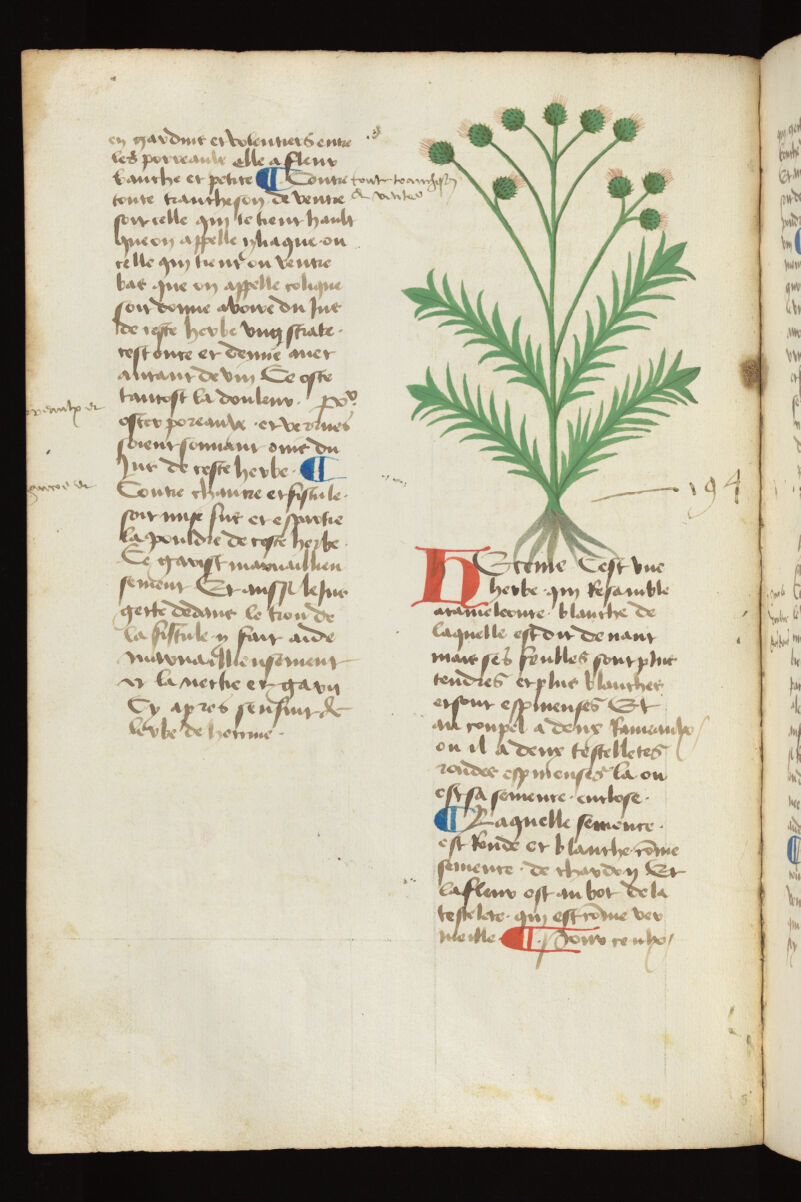 en gardins et volentiers entre
les porreaulx elle a fleur
blanche et petite ¶ Contre
toute trancheson de ventre
soit celle qui se tient hault
que on appelle yliaque ou
celle qui tient ou ventre
bas que on appelle colique
soit donne a boire du jus
de ceste herbe ung
cest once et demie avec
autant de vin Ce oste
tantost la douleur. po.
oster poreaulx et verrues
soient souvant oins du
jus de ceste herbe. ¶
Contre chancre et fistule.
soit mise sus et espartie
la pouldre de ceste herbe.
Ce garist marvaillieu
sement Et aussi le jus
gette dedans le trou de
la fistule y fait aide
marvaillieusement
et la netie et garit
Cy apres sensuit de
lerbe de heceme.
contre toute trancheson
de ventre
194
HEceme Cest une
herbe qui resamble
a cameleonte blanche de
laquelle est dit devant
mais ses feulles sont plus
tendres et plus blanches
et sont espineuses Et
au coupel a deux rameaulx
ou il a deux testelletes
rondes espineuses la ou
est sa semence enclose.
¶ Laquelle semence.
est ronde et blanche cõme
semence de chardon Et
la fleur est au bot de la
testelete qui est cõme ver
meille. ¶ Pour ceulx